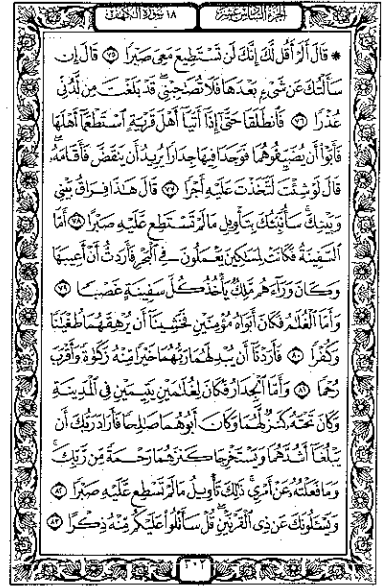 الجزء السادس عشر
١٨ سورة الكهف
* قَالَ أَلَمْ أَقُل لَّكَ إِنَّكَ لَن تَسْتَطِيعَ مَعِيَ صَبْرًا ٧٥ قَالَ إِن
سَأَلْتُكَ عَن شَيْءٍ بَعْدَهَا فَلَا تُصَاحِبْنِي قَدْ بَلَغْتَ مِن لَّدُنِّي
عُذْرًا ٧٦ فَانطَلَقَا حَتَّىٰ إِذَا أَتَيَا أَهْلَ قَرْيَةٍ اسْتَطْعَمَا أَهْلَهَا
فَأَبَوْا أَن يُضَيِّفُوهُمَا فَوَجَدَا فِيهَا جِدَارًا يُرِيدُ أَن يَنقَضَّ فَأَقَامَهُ
قَالَ لَوْ شِئْتَ لَتَّخَذْتَ عَلَيْهِ أَجْرًا ٧٧ قَالَ هَٰذَا فِرَاقُ بَيْنِي
وَبَيْنِكَ سَأُنَبِّئُكَ بِتَأْوِيلِ مَا لَمْ تَسْتَطِع عَّلَيْهِ صَبْرًا ٧٨ أَمَّا
السَّفِينَةُ فَكَانَتْ لِمَسَاكِينَ يَعْمَلُونَ فِي الْبَحْرِ فَأَرَدتُّ أَنْ أَعِيبَهَا
وَكَانَ وَرَاءَهُم مَّلِكٌ يَأْخُذُ كُلَّ سَفِينَةٍ غَصْبًا ٧٩
وَأَمَّا الْغُلَامُ فَكَانَ أَبَوَاهُ مُؤْمِنَيْنِ فَخَشِينَا أَن يُرْهِقَهُمَا طُغْيَانًا
وَكُفْرًا ٨٠ فَأَرَدْنَا أَن يُبْدِلَهُمَا رَبُّهُمَا خَيْرًا مِّنْهُ زَكَاةً وَأَقْرَبَ
رُحْمًا ٨١ وَأَمَّا الْجِدَارُ فَكَانَ لِغُلَامَيْنِ يَتِيمَيْنِ فِي الْمَدِينَةِ
وَكَانَ تَحْتَهُ كَنزٌ لَّهُمَا وَكَانَ أَبُوهُمَا صَالِحًا فَأَرَادَ رَبُّكَ أَن
يَبْلُغَا أَشُدَّهُمَا وَيَسْتَخْرِجَا كَنزَهُمَا رَحْمَةً مِّن رَّبِّكَ
وَمَا فَعَلْتُهُ عَنْ أَمْرِي ذَٰلِكَ تَأْوِيلُ مَا لَمْ تَسْطِع عَّلَيْهِ صَبْرًا ٨٢
وَيَسْأَلُونَكَ عَن ذِي الْقَرْنَيْنِ قُلْ سَأَتْلُو عَلَيْكُم مِّنْهُ ذِكْرًا ٨٣
٣٠٢